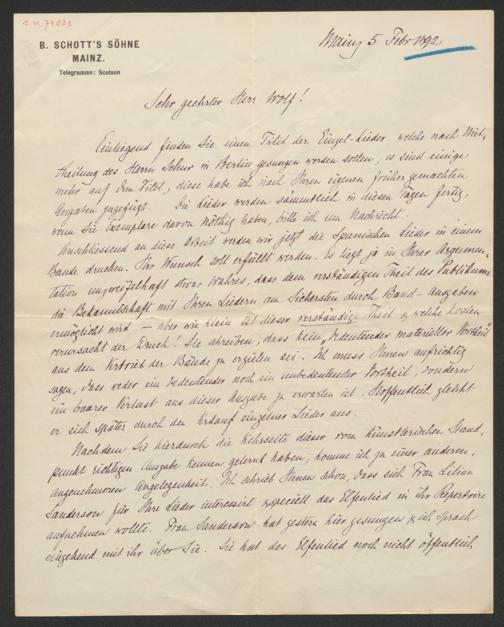 B. SCHOTT'S SÖHNE
MAINZ.
Telegramme: Scotson
Mainz 5 Febr 1892
Sehr geehrter Herr Wolf!
Einliegend finden Sie einen Titel der Einzel-Lieder welche nach Mit-
theilung des Herrn Schur in Berlin gesungen werden sollen, es sind einige
mehr auf dem Titel, diese habe ich nach Ihren eigenen früher gemachten
Angaben zugefügt. Die Lieder werden sämmtlich in diesen Tagen fertig,
wenn Sie Exemplare davon nöthig haben, bitte ich um Nachricht.
Anschliessend an diese Arbeit werden wir jetzt die Spanischen Lieder in einem
Bande drucken. Ihr Wunsch soll erfüllt werden. Es liegt ja in Ihrer Argumen-
tation unzweifelhaft etwas Wahres, dass dem verständigen Theil des Publikums
die Bekanntschaft mit Ihren Liedern am Sichersten durch Band-Ausgaben
ermöglicht wird – aber wie klein ist dieser verständige Theil & welche Kosten
verursacht der Druck! Sie schreiben, dass kein bedeutender materieller Vortheil
aus dem Vertrieb der Bände zu erzielen sei. Ich muss Ihnen aufrichtig
sagen, dass weder ein bedeutender noch ein unbedeutender Vortheil, sondern
ein baarer Verlust aus dieser Ausgabe zu erwarten ist. Hoffentlich gleicht
er sich später durch den Verkauf einzelner Lieder aus.
Nachdem Sie hierdurch die Kehrseite dieser vom künstlerischen Stand-
punkt richtigen Ausgabe kennen gelernt haben, komme ich zu einer anderen,
angenehmeren Angelegenheit. Ich schrieb Ihnen schon, dass sich Frau Lilian
Sanderson für Ihre Lieder interessirt & speciell das Elfenlied in ihr Repertoire
aufnehmen wollte. Frau Sanderson hat gestern hier gesungen & ich sprach
eingehend mit ihr über Sie. Sie hat das Elfenlied noch nicht öffentlich